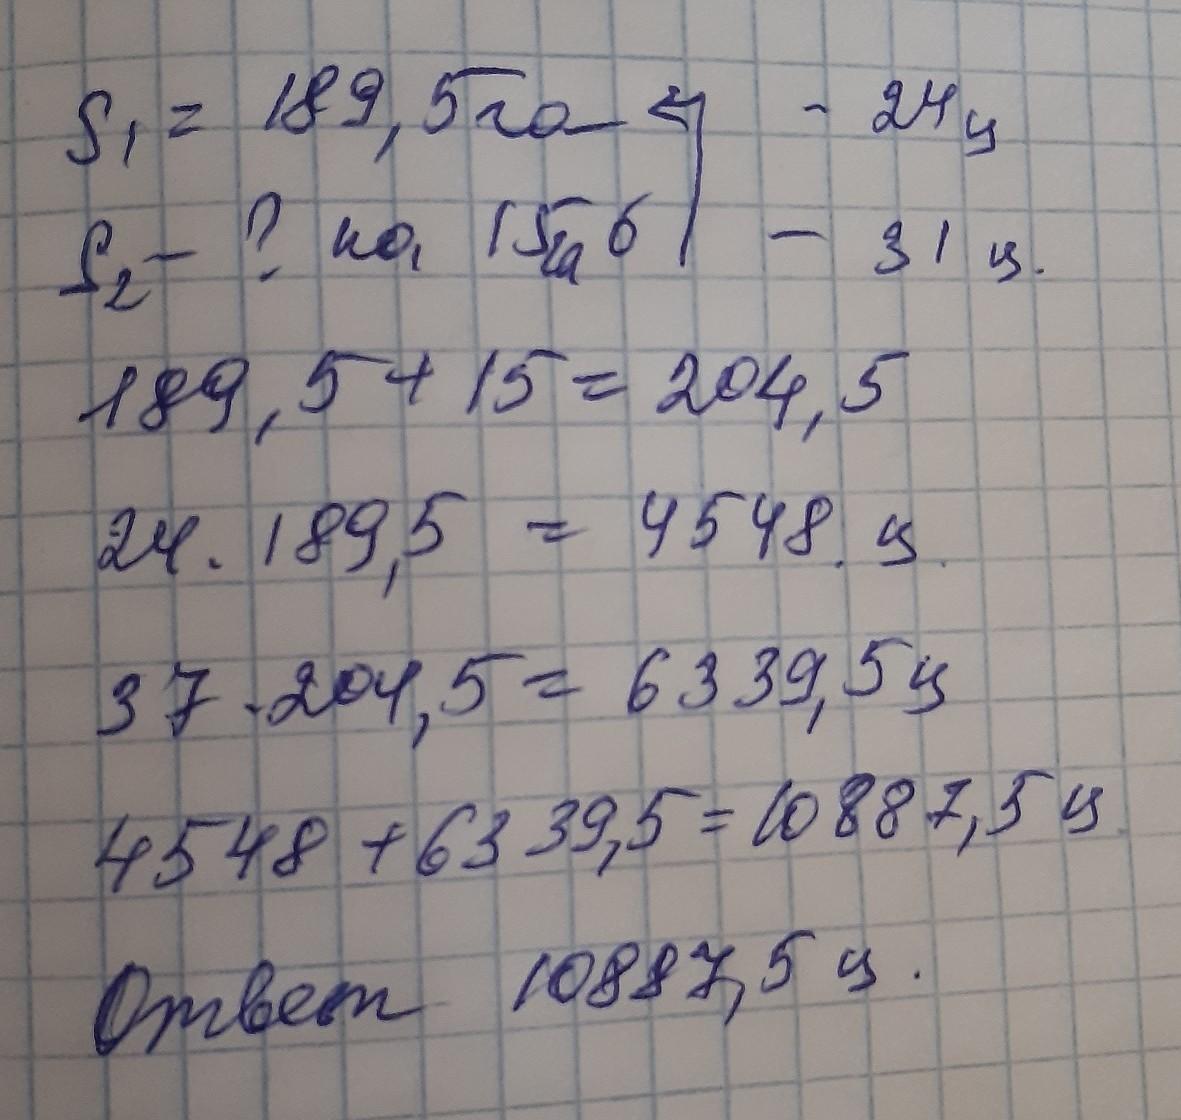 S₁ = 189,5га - 24ц
S₂ - ? на 15га б - 31 ц.
189,5 + 15 = 204,5
24 . 189,5 = 4548. ц.
37 . 204,5 = 6339,5 ц
4548 + 6339,5 = 10887,5 ц.
Ответ 10887,5 ц.